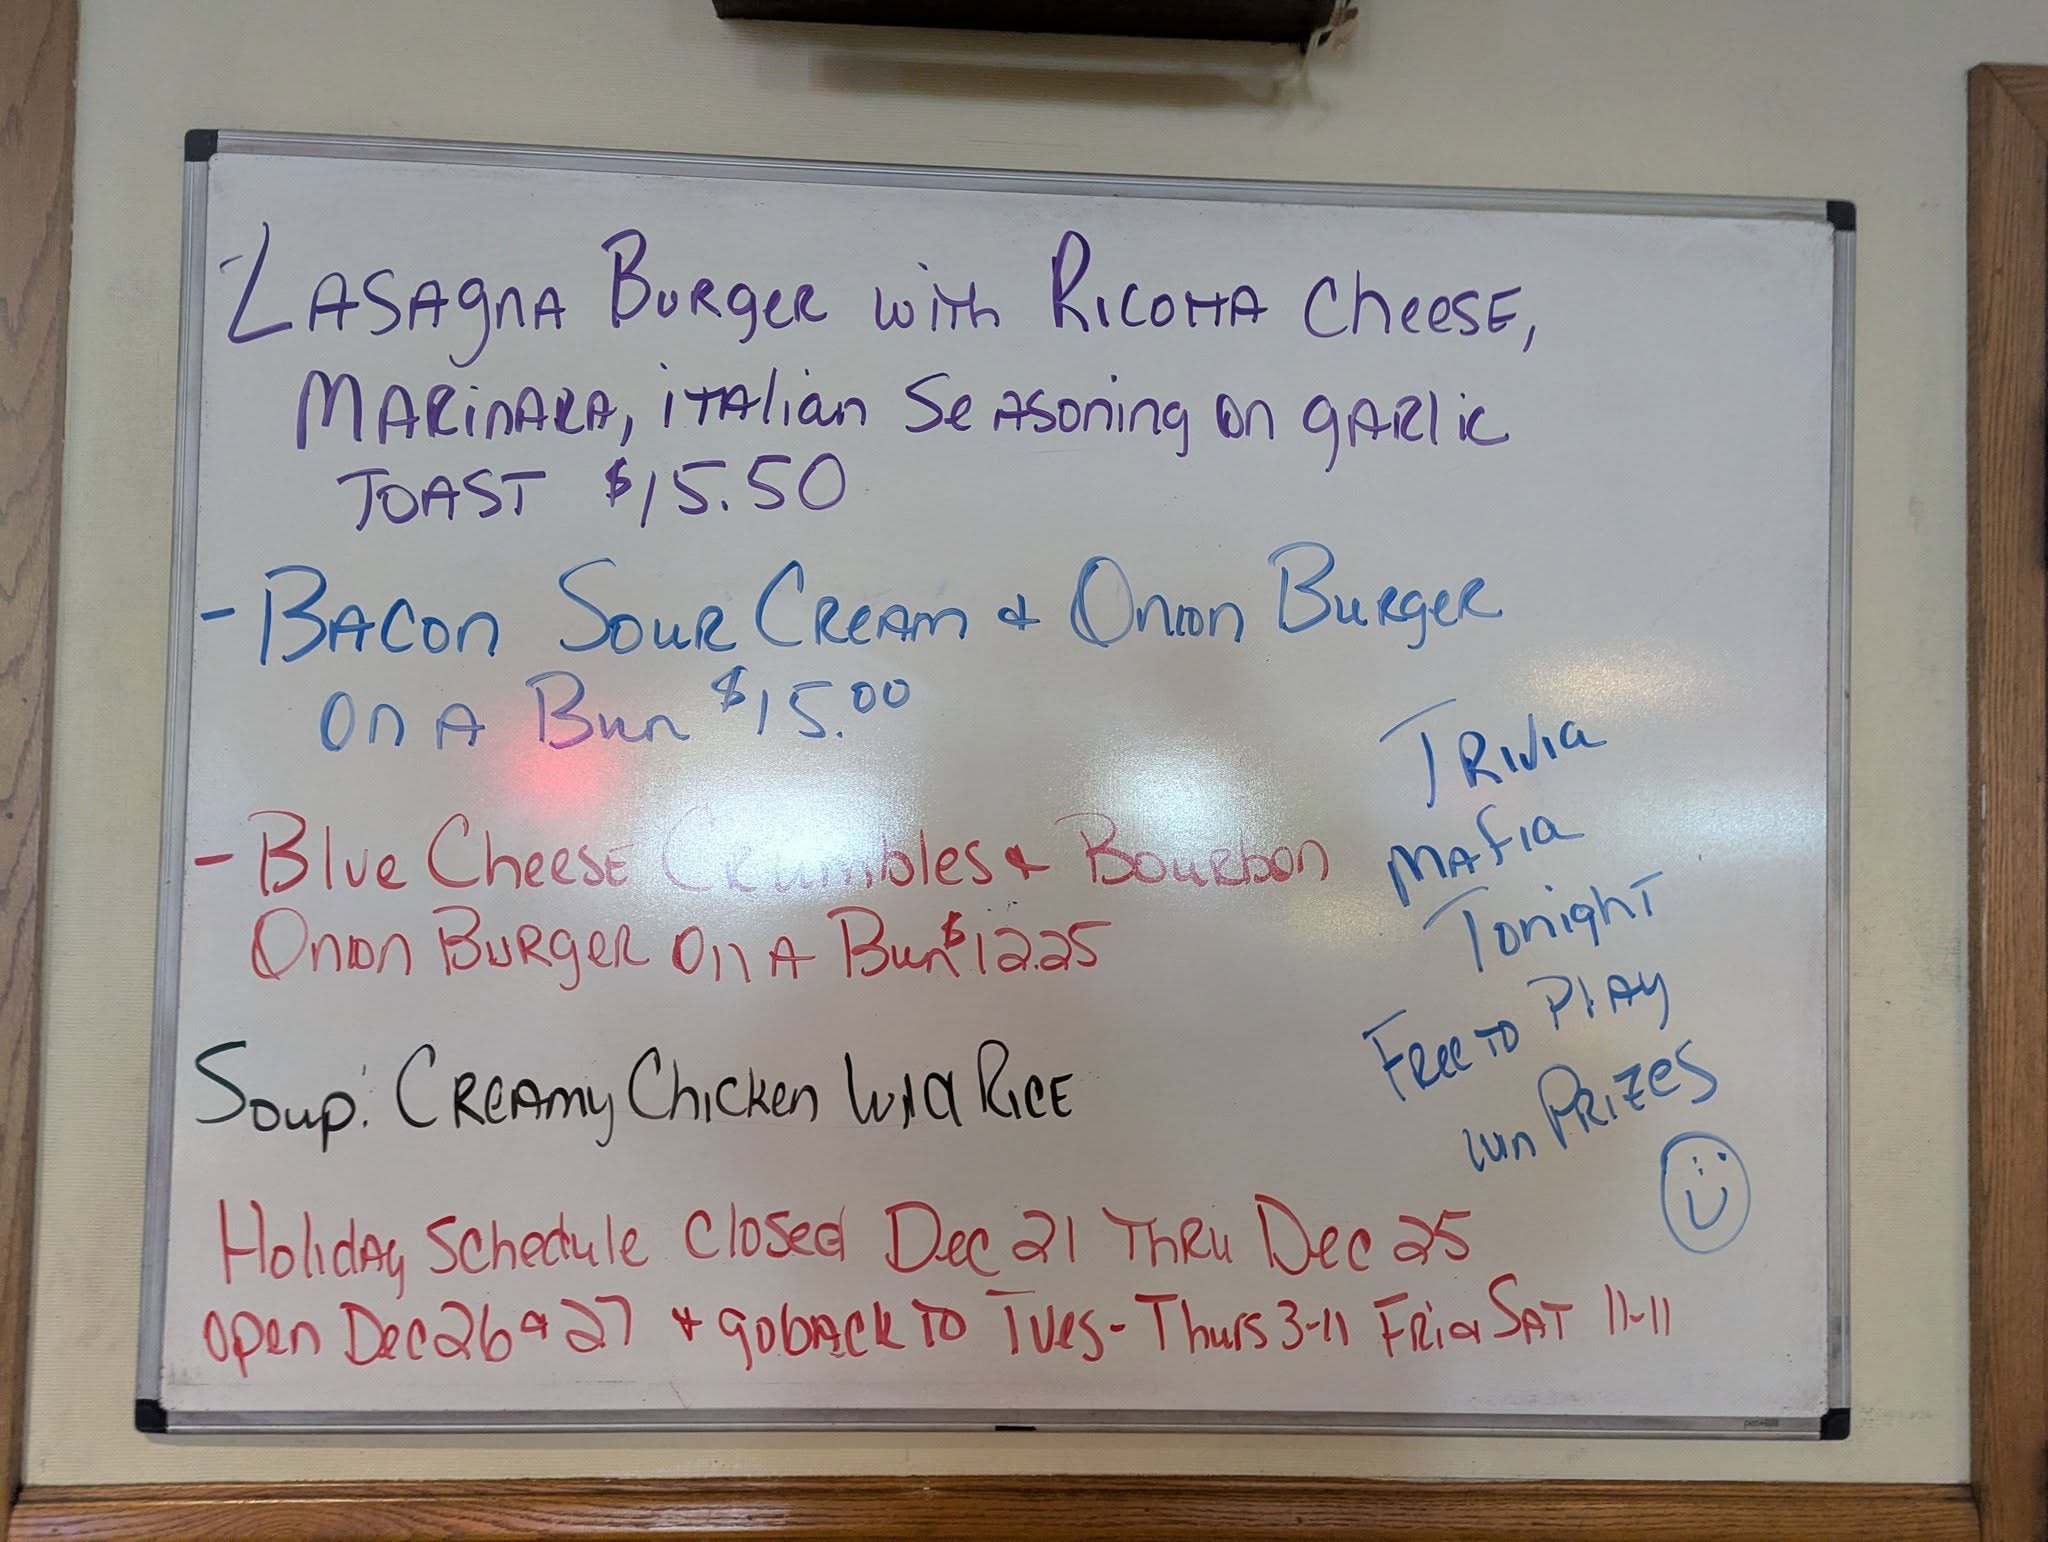 - Lasagna Burger with Ricotta Cheese,
Marinara, italian Seasoning on garlic
Toast $15.50
- Bacon Sour Cream & Onion Burger
on A Bun $15.00
- Blue Cheese Crumbles & Bourbon
Onion Burger on A Bun $12.25
Soup: Creamy Chicken Wild Rice
Trivia
Mafia
Tonight
Free to Play
win Prizes
Holiday Schedule Closed Dec 21 Thru Dec 25
open Dec 26 & 27 & go back to Tues-Thurs 3-11 Fri & Sat 11-11